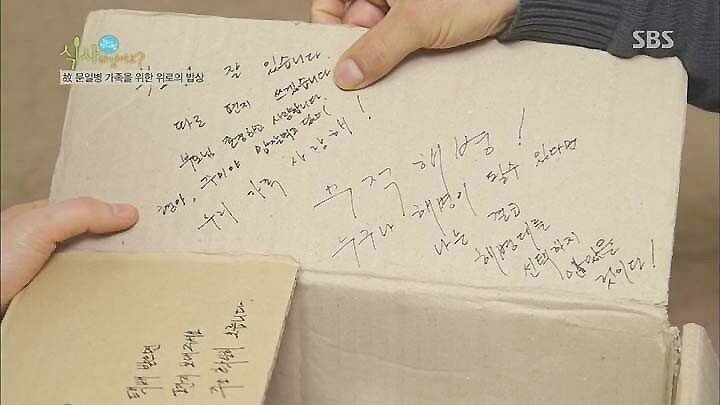 식사하셨어요?
SBS
故 문일병 가족을 위한 위로의 밥상
잘 있습니다.
따로 편지 쓰겠습니다.
부모님 존경하고 사랑합니다.
우리 가족 사랑해!
무적해병!
누구나 해병이 될수 있다면
나는 결코
해병대를
선택하지
않았을
것이다!
택배 받으면
편지 보내주세요